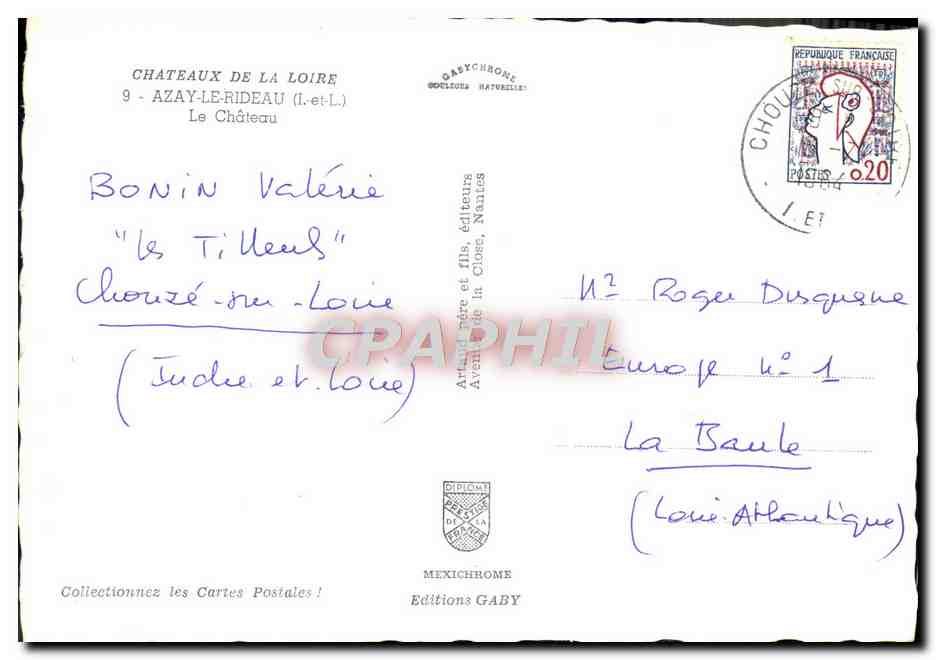 CHATEAUX DE LA LOIRE
9 - AZAY-LE-RIDEAU (I.-et-L.)
Le Château
GABYCHROME
COULEURS NATURELLES
REPUBLIQUE FRANÇAISE
POSTES 0.20
CHOUZE SUR LOIRE
I. ET
BONIN Valérie
"les Tilleuls"
Chouzé-sur-Loire
(Indre et Loire)
Artaud père et fils, éditeurs
Avenue de la Close, Nantes
CPAPHIL
Mr Roger Duquesne
Europe n° 1
La Baule
(Loire Atlantique)
DIPLOME
PRESTIGE
DE LA
FRANCE
MEXICHROME
Editions GABY
Collectionnez les Cartes Postales !